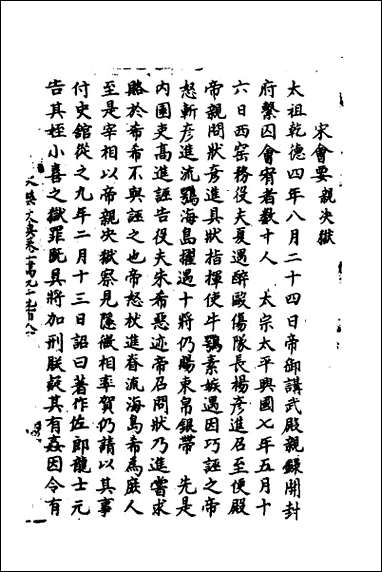 宋會要 親決獄
太祖乾德四年八月二十四日帝御講武殿親錄開封
府繫囚會宥者數十人 太宗太平興國七年五月十
六日西窑務役夫夏遇醉毆傷隊長楊彥進召至便殿
帝親問狀彥進具狀指揮使牛鶚素嫉遇因巧誣之帝
怒斬彥進流鶚海島擢遇十將仍賜束帛銀帶 先是
內園吏高進誣告役夫朱希惡迹帝召問狀乃進嘗求
賂於希希不與誣之也帝怒杖進脊流海島希爲庶人
至是宰相以帝親決獄察見隱微相率賀仍請以其事
付史館從之九年二月十三日詔曰著作佐郎龍士元
告其姪小喜之獄罪既具將加刑朕疑其有姦因令有